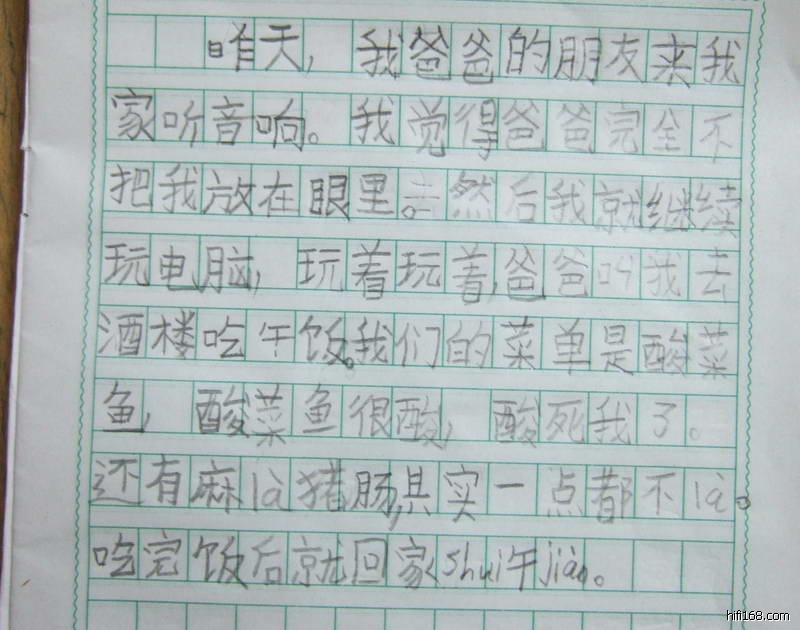 昨天，我爸爸的朋友来我
家听音响。我觉得爸爸完全不
把我放在眼里。然后我就继续
玩电脑，玩着玩着，爸爸叫我去
酒楼吃午饭。我们的菜单是酸菜
鱼，酸菜鱼很酸，酸死我了。
还有麻là猪肠，其实一点都不là。
吃完饭后就回家shuì午jiào。
hifi168.com